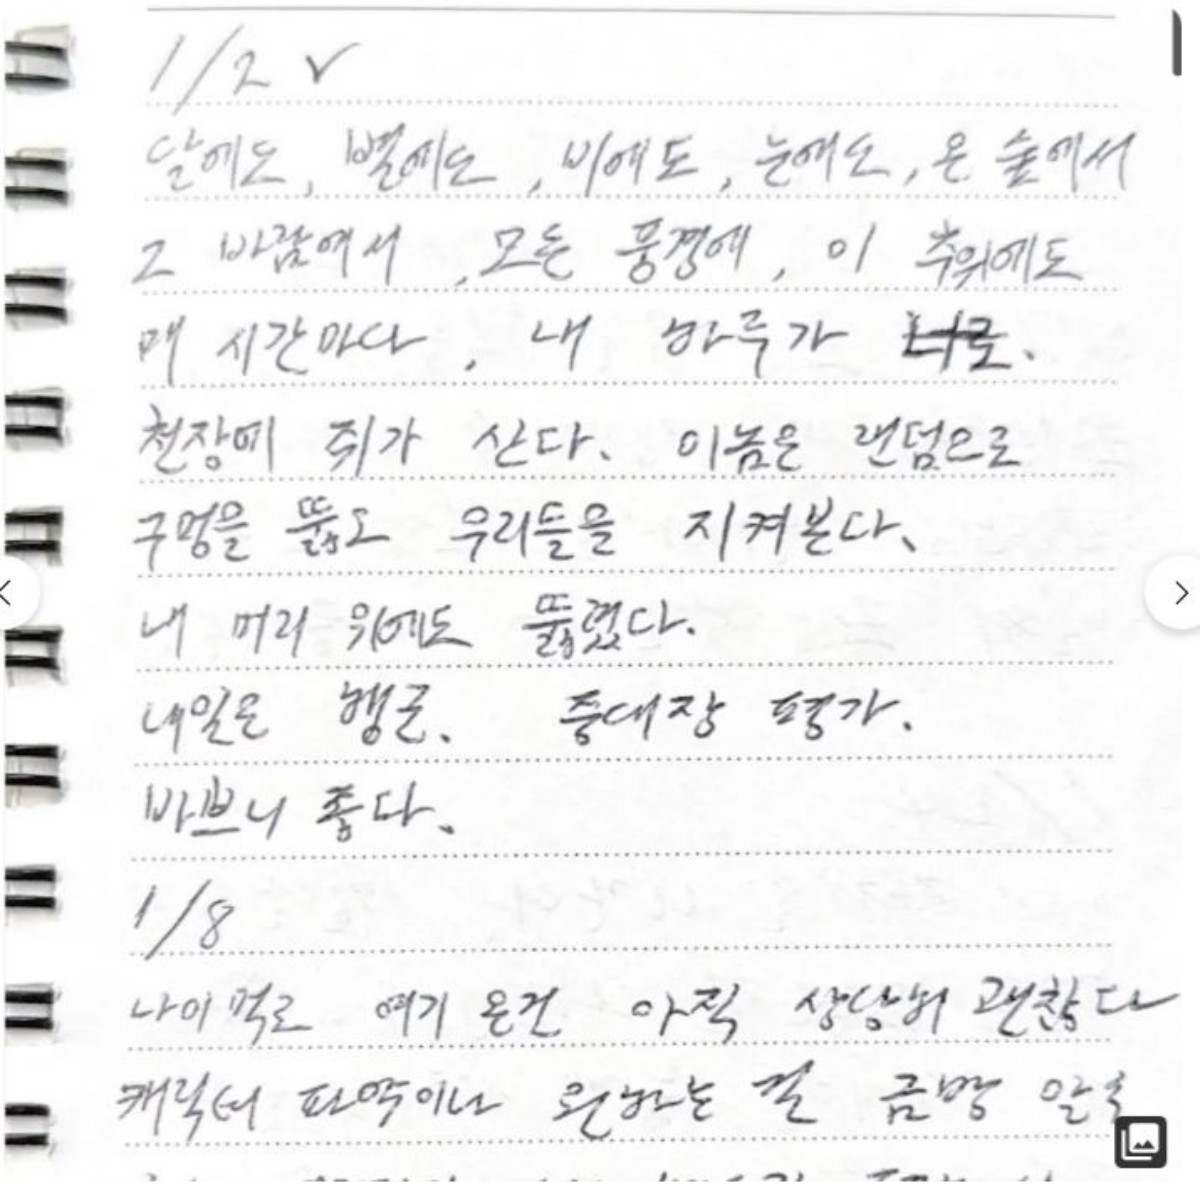 1/2 ✓
달에도, 별에도, 비에도, 눈에도, 온 숲에서
그 바람에서, 모든 풍경에, 이 추위에도
매 시간마다, 내 하루가 너로.
천장에 쥐가 산다. 이놈은 랜덤으로
구멍을 뚫고 우리들을 지켜본다.
내 머리 위에도 뚫렸다.
내일은 행군. 중대장 평가.
바쁘니 좋다.
1/8
나이먹고 여기 온건 아직 상당히 괜찮다
캐릭터 파악이나 원하는 걸 금방